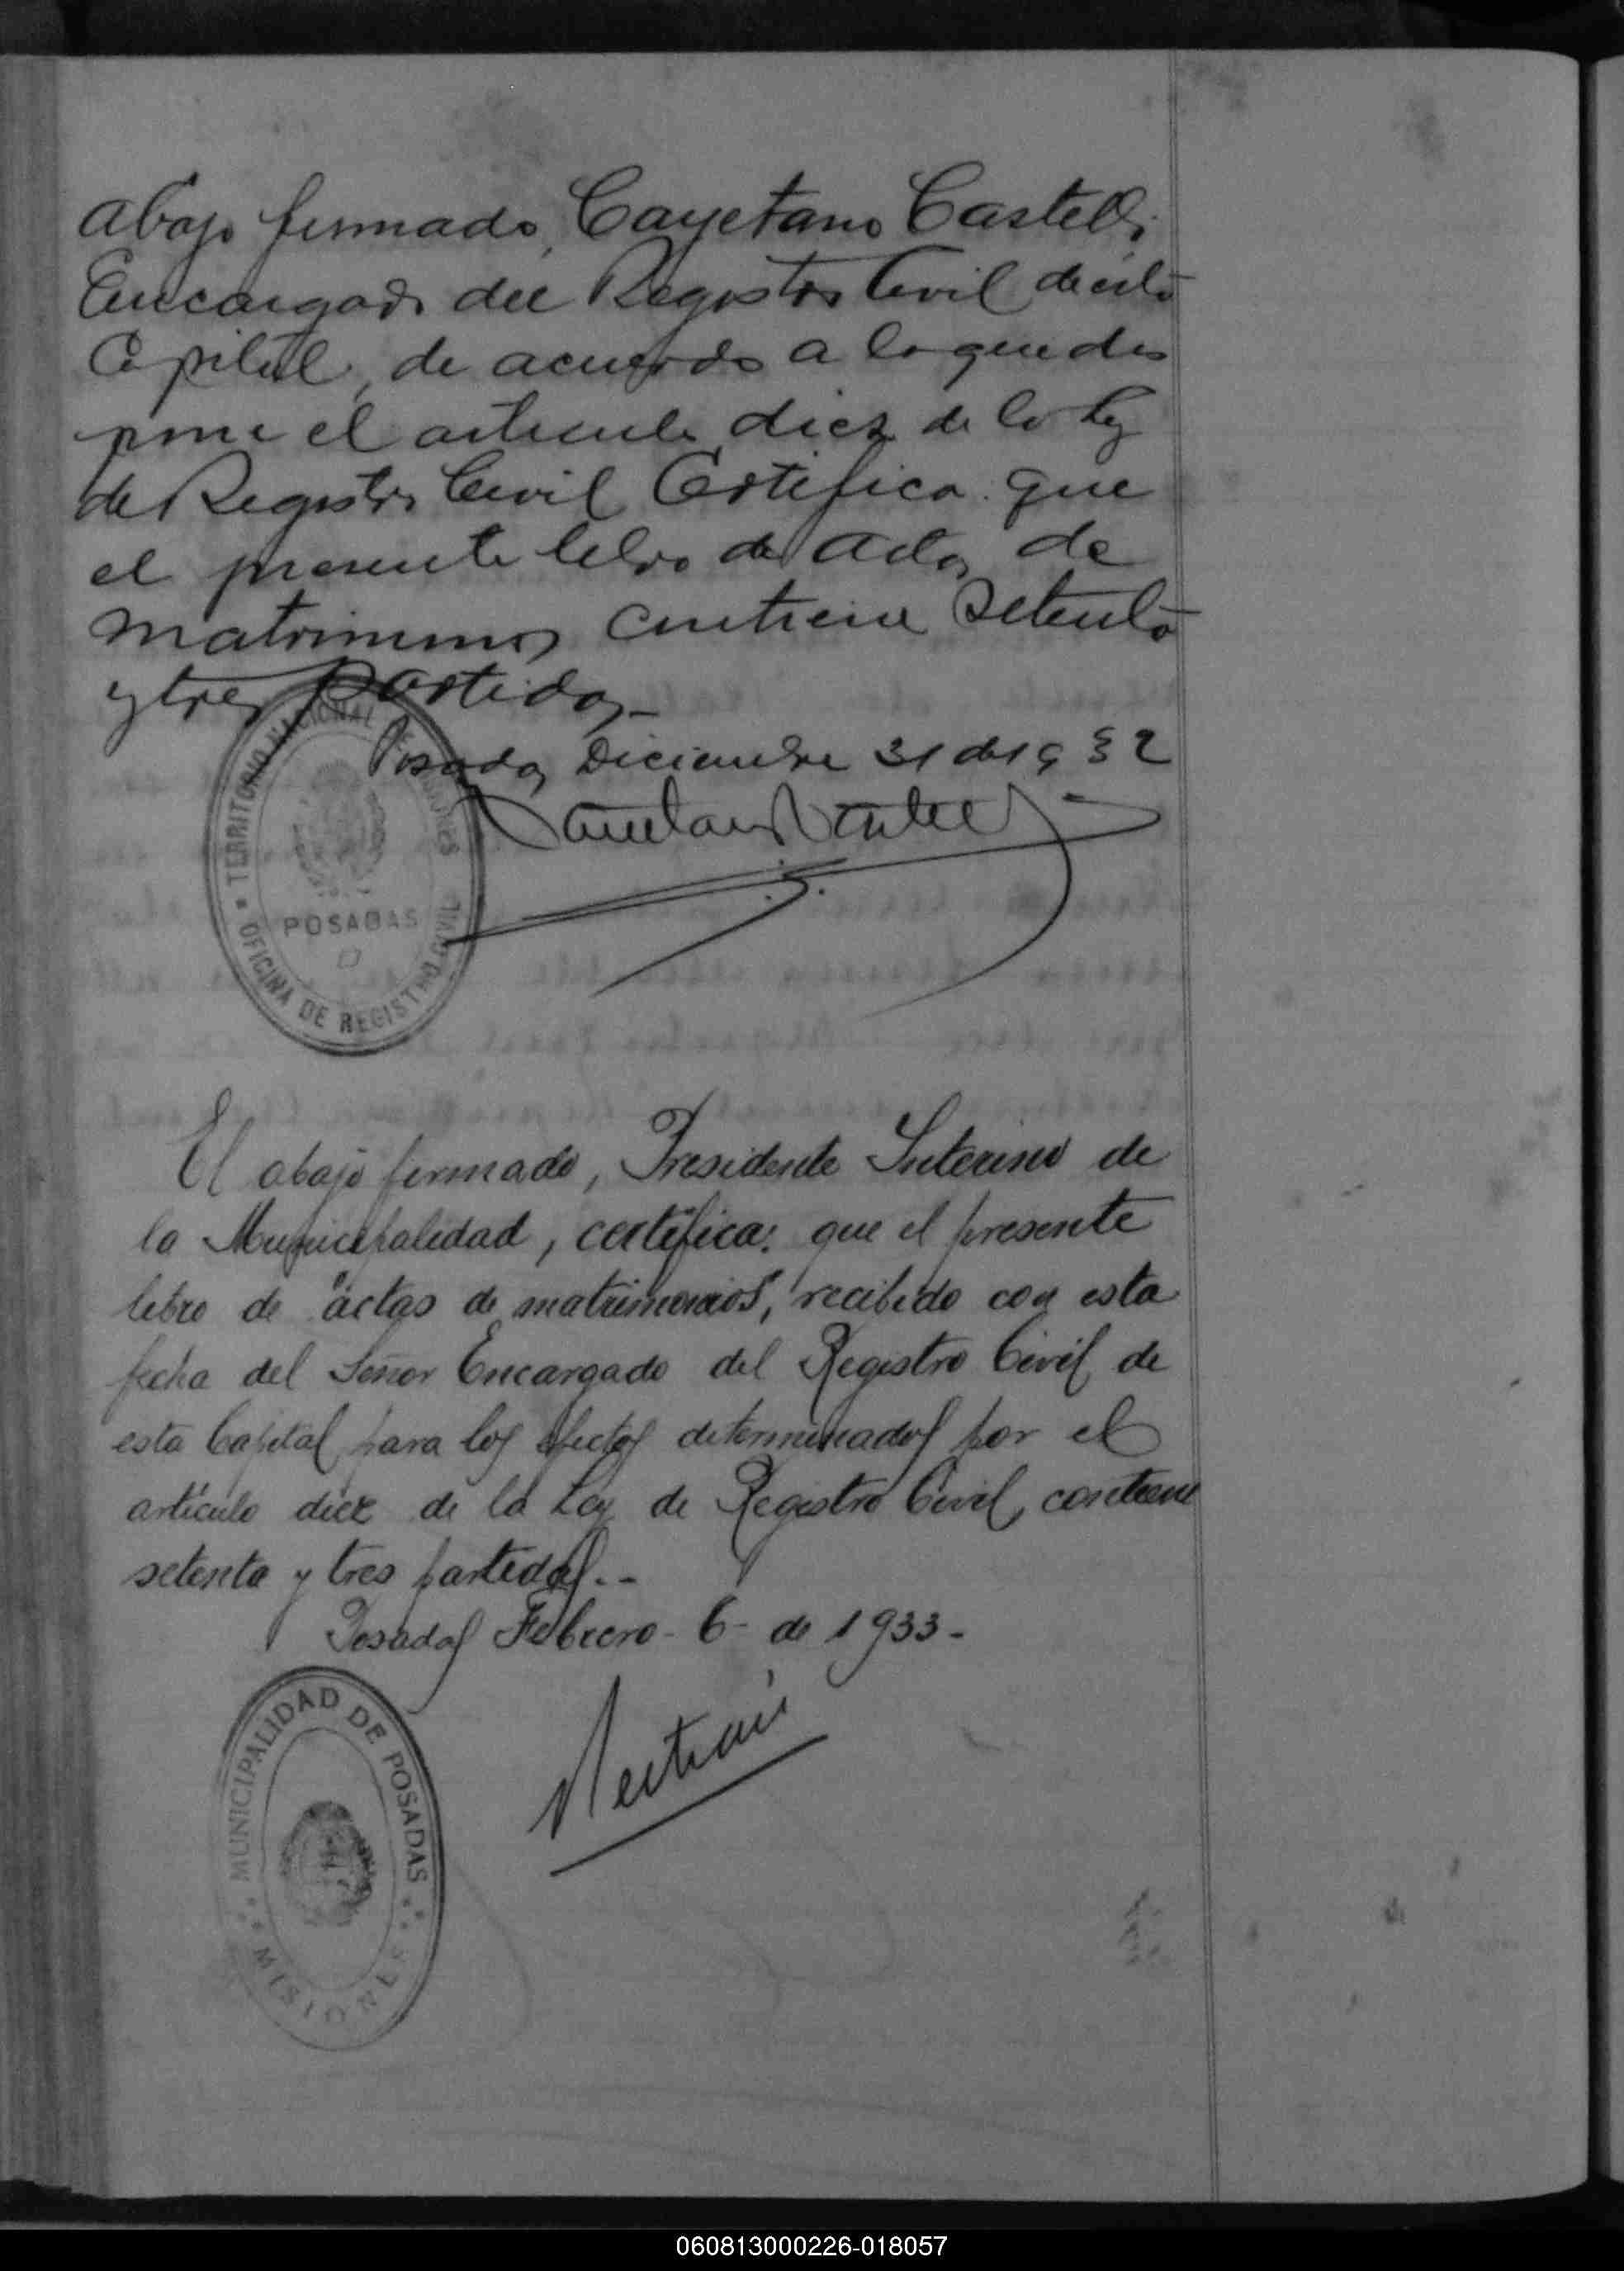 abajo firmado, Cayetano Castelli
Encargado del Registro Civil de esta
Capital, de acuerdo a lo que dis
pone el articulo diez de la Ley
de Registro Civil Certifica: que
el presente libro de actas de
matrimonios contiene Setenta
y tres partidas_
Posadas Diciembre 31 de 1932
TERRITORIO NACIONAL DE MISIONES
POSADAS
OFICINA DE REGISTRO CIVIL
El abajo firmado, Presidente Interino de
la Municipalidad, certifica: que el presente
libro de "actas de matrimonios", recibido con esta
fecha del Señor Encargado del Registro Civil de
esta Capital para los efectos determinados por el
artículo diez de la Ley de Registro Civil, contiene
setenta y tres partidas.--
Posadas Febrero - 6 - de 1933-
MUNICIPALIDAD DE POSADAS
MISIONES
060813000226-018057